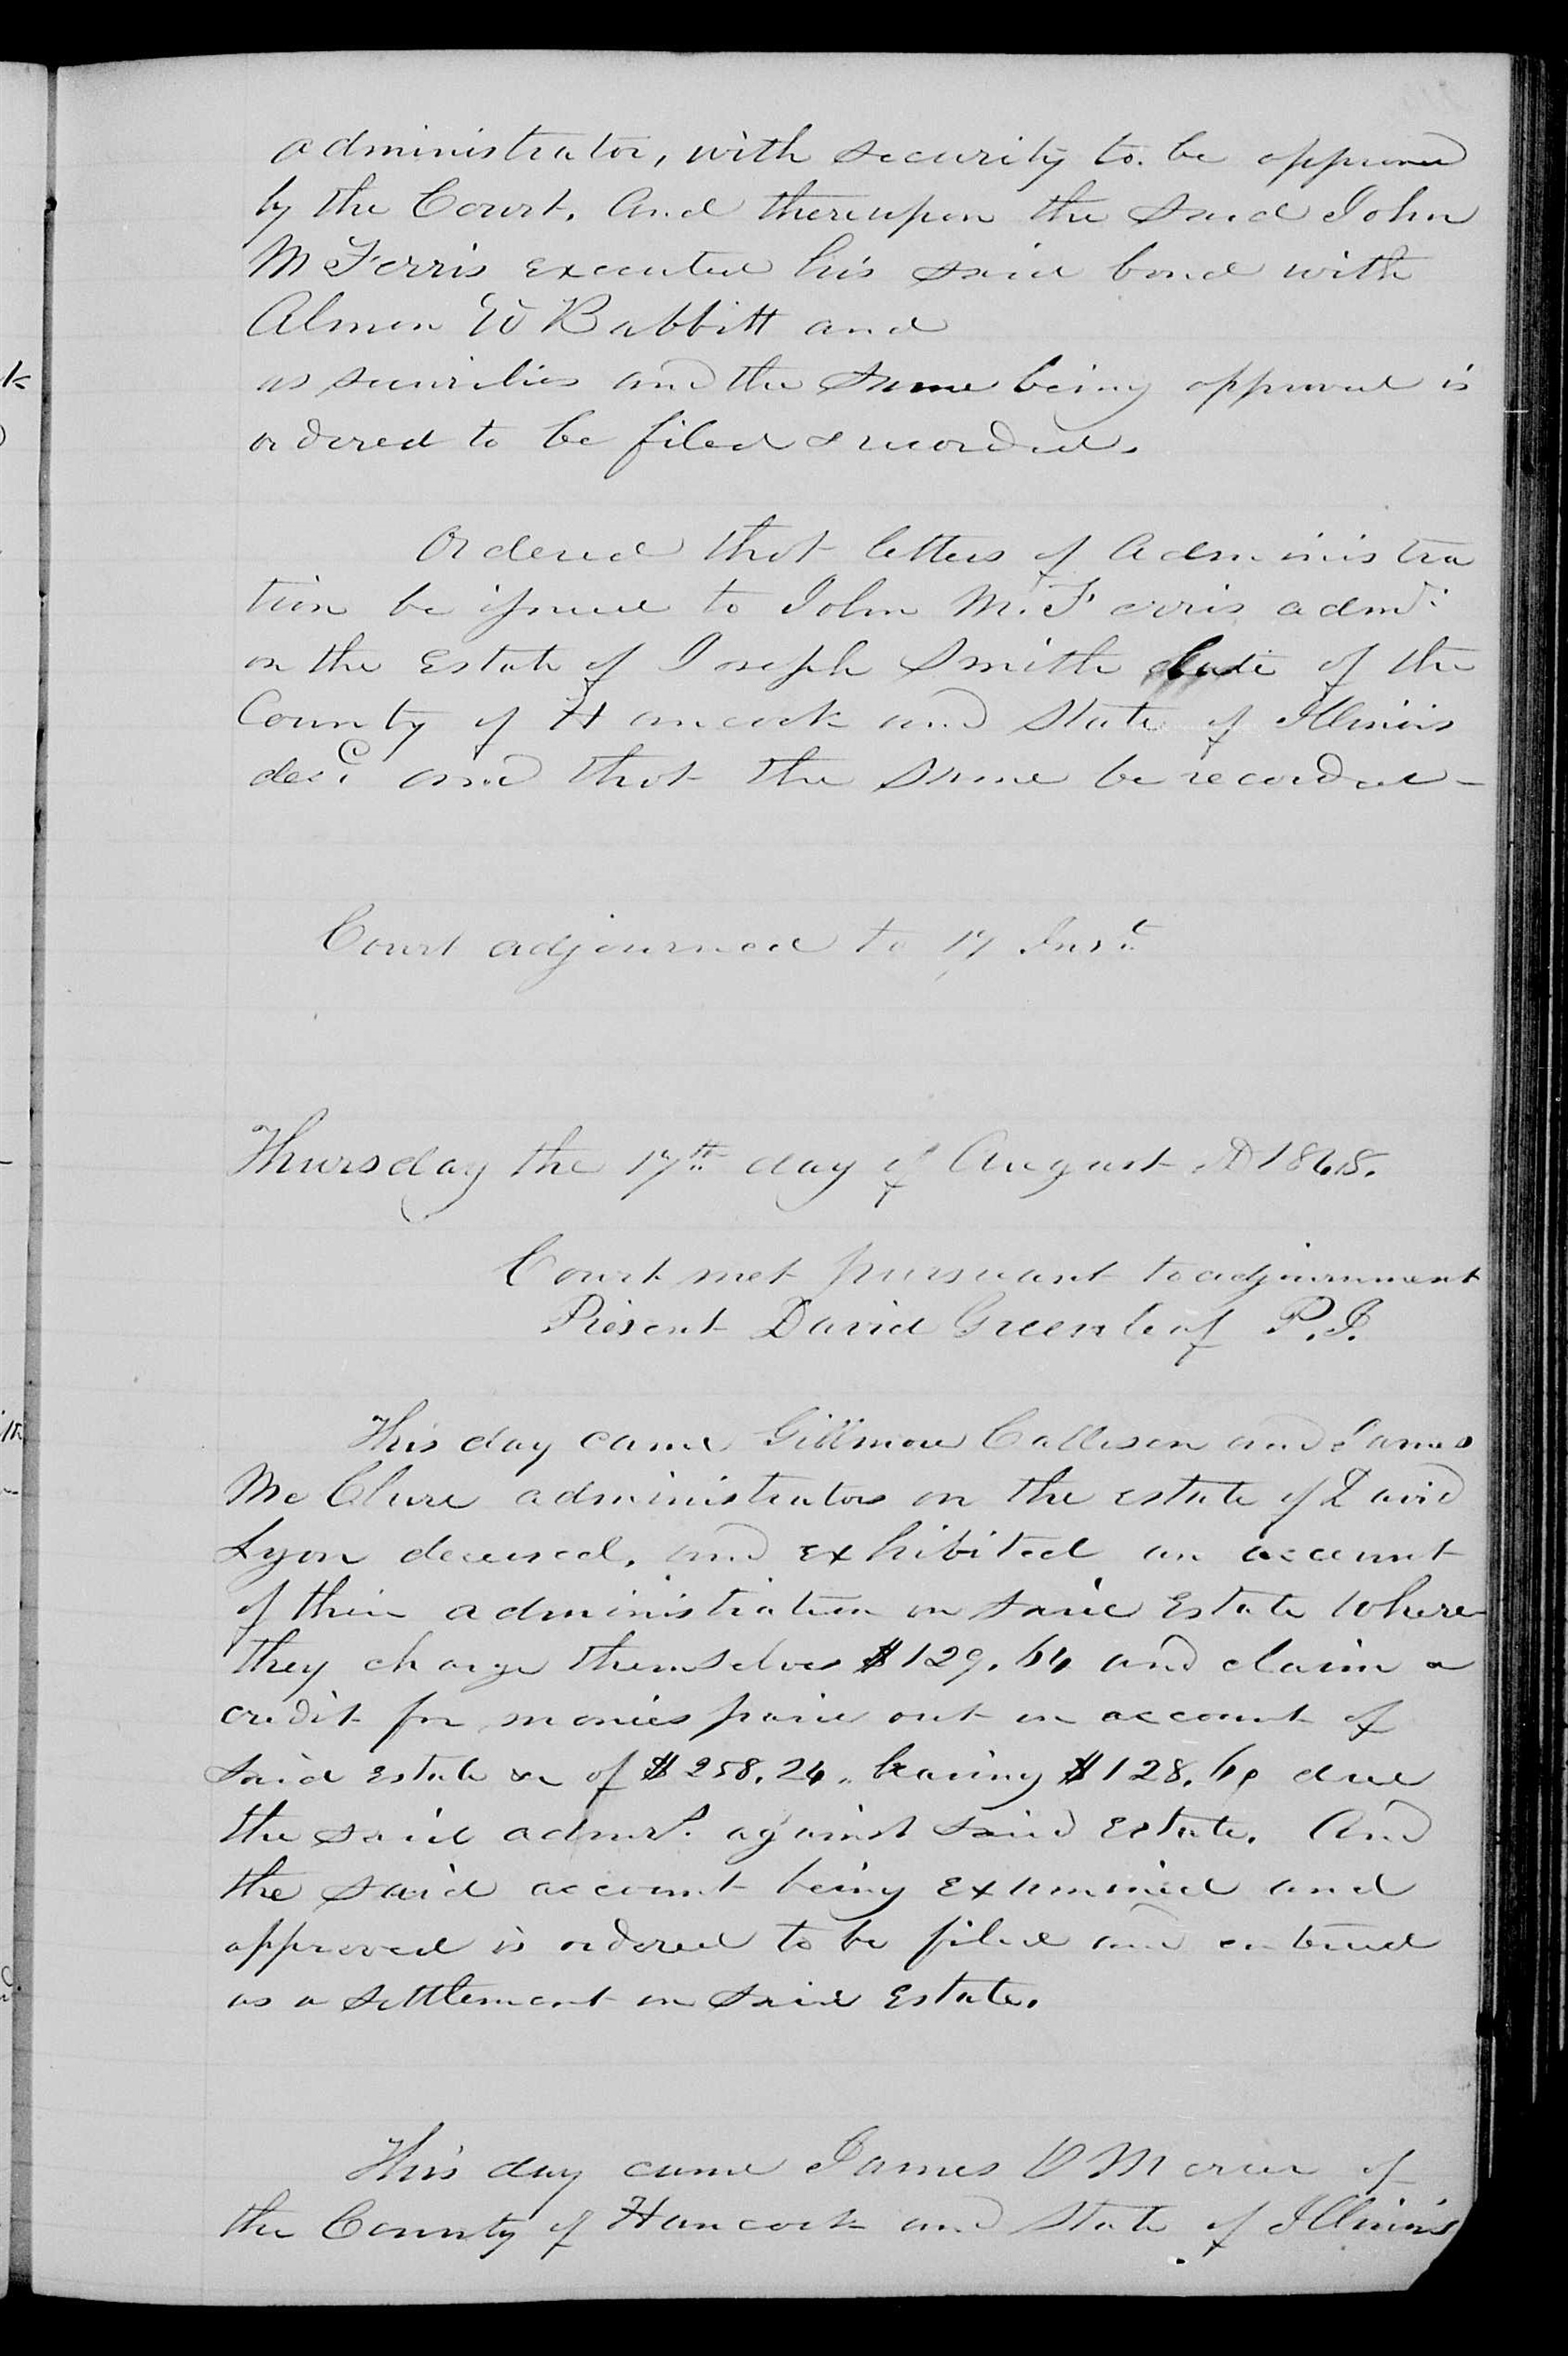 administrator, with security to be approved
by the Court. And thereupon the said John
M Ferris executed his said bond with
Almon W Babbitt and
as securities and the same being approved is
ordered to be filed & recorded.
Ordered that letters of Administra
tion be issued to John M. Ferris admr.
on the Estate of Joseph Smith late of the
County of Hancock and State of Illinois
decd. and that the same be recorded -
Court adjourned to 17 Inst.
Thursday the 17th. day of August AD 1848.
Court met pursuant to adjournment
Present David Greenleaf P.J.
This day came Gillmore Callison and James
McClure administrators on the estate of David
Lyon deceased, and exhibited an account
of their administration on said Estate where
they charge themselves $129.64 and claim a
credit for monies paid out on account of
said estate &c of $258.24. leaving $128.60 due
the said admrs. against said Estate. And
the said account being examined and
approved is ordered to be filed and entered
as a settlement on said Estate.
This day came James Mercer of
the County of Hancock and State of Illinois